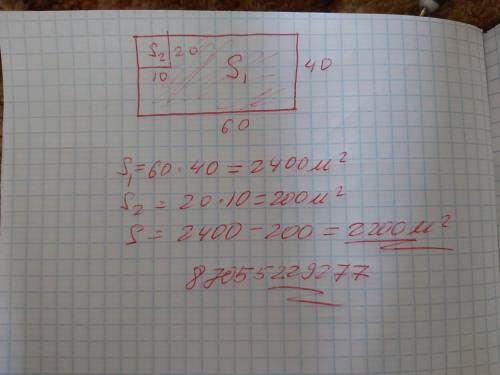 S₂ 20
10 S₁ 40
60
S₁ = 60 · 40 = 2400 м²
S₂ = 20 · 10 = 200 м²
S = 2400 - 200 = 2200 м²
87055229277